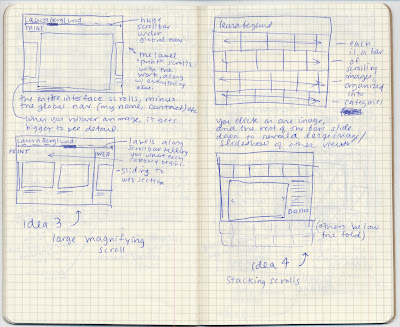 Laura Berglund
PRINT
huge
scrollbar
under
global nav
the label
"print" scrolls
with the
work, along
w/ everything
else.
the entire interface scrolls, minus
the global nav (my name, contact) etc
when you rollover an image, it gets
bigger to see detail
Laura Berglund
PRINT
WEB
labels along
scrollbar telling
you where each
category begins.
sliding to
web section
idea 3
large magnifying
scroll
laura berglund
each
is a bar
of
scrolling
images,
organized
into
categories
you click on one image,
and the rest of the bars slide
down to reveal large image/
slideshow of other views
(others below
the fold)
idea 4
stacking scrolls